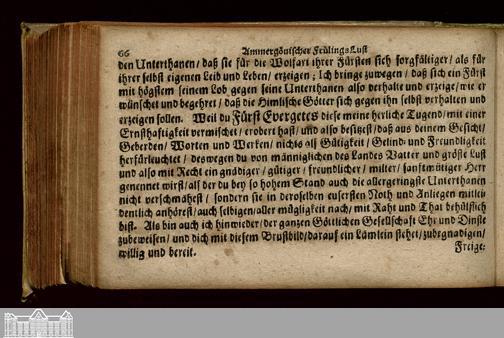 66 Ammergönischer Frülings Lust
den Unterthanen / daß sie für die Wolfart ihrer Fürsten sich sorgfältiger / als für
ihrer selbst eigenen Leib und Leben / erzeigen; Ich bringe zuwegen / daß sich ein Fürst
mit högstem seinem Lob gegen seine Unterthanen also verhalte und erzeige / wie er
wünschet und begehret / daß die Himlische Götter sich gegen ihn selbst verhalten und
erzeigen sollen. Weil du Fürst Evergetes diese meine herliche Tugend / mit einer
Ernsthaftigkeit vermischet / erobert hast / und also besitzest / daß aus deinem Gesicht /
Geberden / Worten und Werken / nichts als Gütigkeit / Gelind- und Freundligkeit
herfürleuchtet / deswegen du von männiglichen des Landes Vatter und gröste Lust
und also mit Recht ein gnädiger / gütiger / freundlicher / milter / sanftmütiger Herr
genennet wirst / als der du bey so hohem Stand auch die allergeringste Unterthanen
nicht verschmähest / sondern sie in derselben eusersten Noth und Anliegen mitlei-
dentlich anhörest / auch selbigen / aller mügligkeit nach / mit Raht und That behülflich
bist. Als bin auch ich hinwieder / der ganzen Göttlichen Gesellschaft Ehr und Dinste
zubeweisen / und dich mit diesem Brustbild / darauf ein Lämlein stehet / zubegnadigen /
willig und bereit.
Freige-